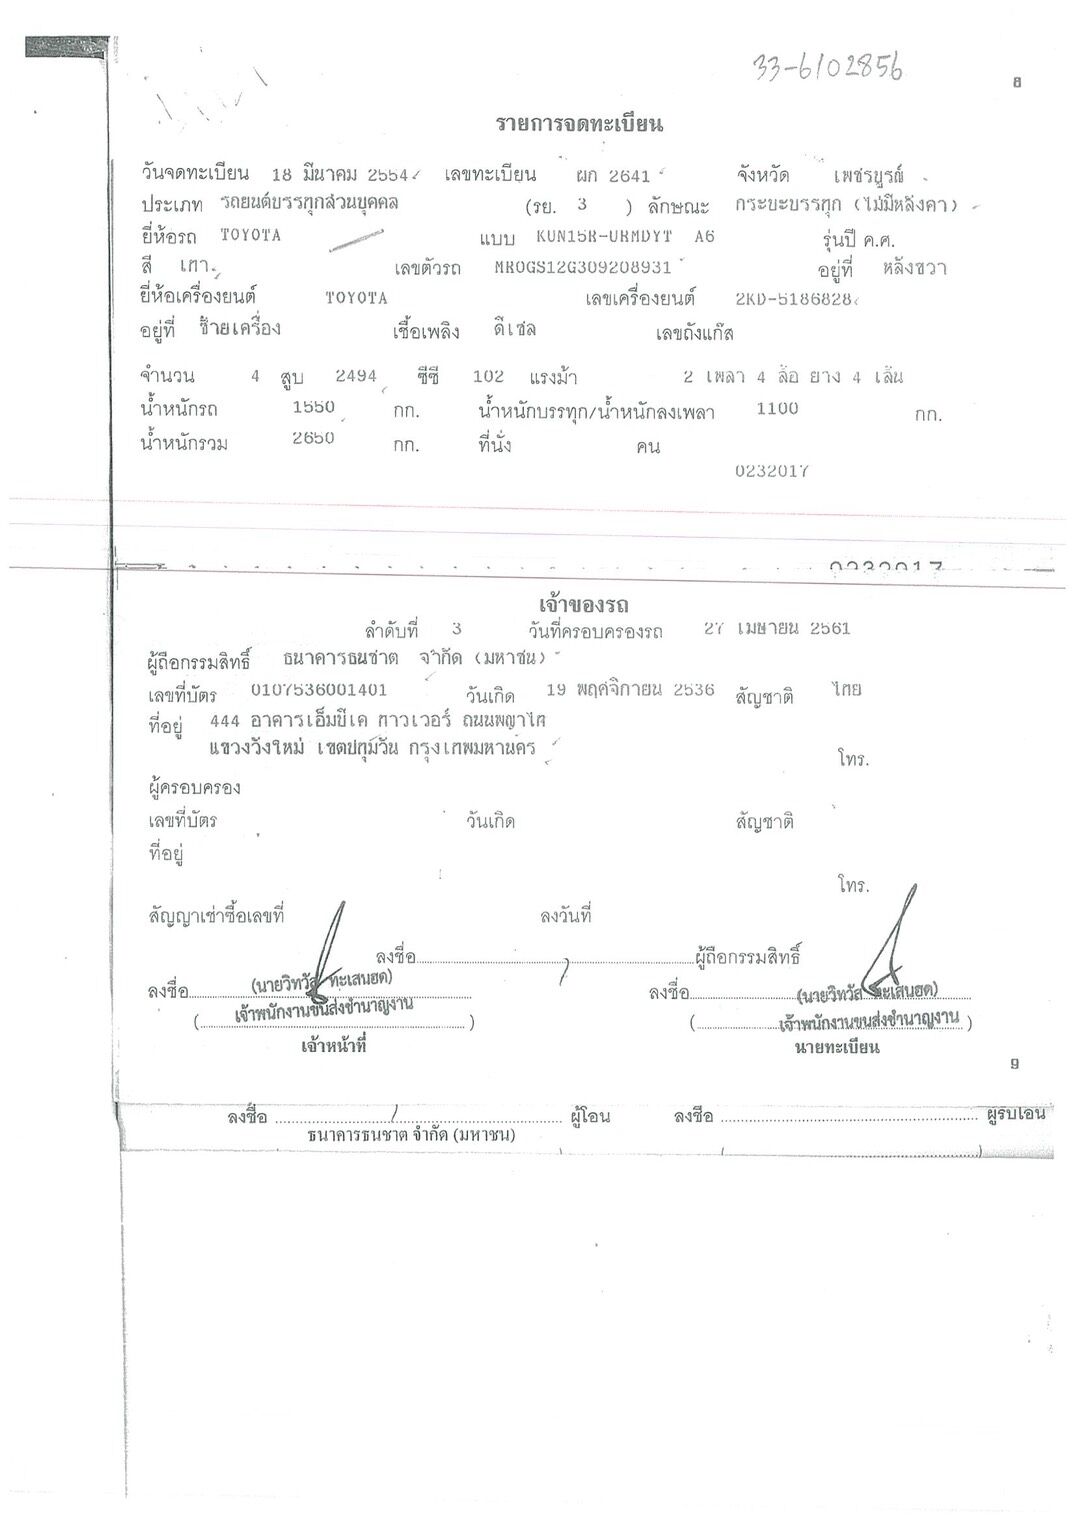 33-6102856
8
รายการจดทะเบียน
วันจดทะเบียน 18 มีนาคม 2554 เลขทะเบียน ผก 2641 จังหวัด เพชรบูรณ์
ประเภท รถยนต์บรรทุกส่วนบุคคล (รย. 3 ) ลักษณะ กระบะบรรทุก (ไม่มีหลังคา)
ยี่ห้อรถ TOYOTA แบบ KUN15R-URMDYT A6 รุ่นปี ค.ศ.
สี เทา เลขตัวรถ MR0GS12G309208931 อยู่ที่ หลังขวา
ยี่ห้อเครื่องยนต์ TOYOTA เลขเครื่องยนต์ 2KD-5186828
อยู่ที่ ซ้ายเครื่อง เชื้อเพลิง ดีเซล เลขถังแก๊ส
จำนวน 4 สูบ 2494 ซีซี 102 แรงม้า 2 เพลา 4 ล้อ ยาง 4 เส้น
น้ำหนักรถ 1550 กก. น้ำหนักบรรทุก/น้ำหนักลงเพลา 1100 กก.
น้ำหนักรวม 2650 กก. ที่นั่ง คน
0232017
0232017
เจ้าของรถ
ลำดับที่ 3 วันที่ครอบครองรถ 27 เมษายน 2561
ผู้ถือกรรมสิทธิ์ ธนาคารธนชาต จำกัด (มหาชน)
เลขที่บัตร 0107536001401 วันเกิด 19 พฤศจิกายน 2536 สัญชาติ ไทย
ที่อยู่ 444 อาคารเอ็มบีเค ทาวเวอร์ ถนนพญาไท
แขวงวังใหม่ เขตปทุมวัน กรุงเทพมหานคร
โทร.
ผู้ครอบครอง
เลขที่บัตร วันเกิด สัญชาติ
ที่อยู่
โทร.
สัญญาเช่าซื้อเลขที่ ลงวันที่
ลงชื่อ ผู้ถือกรรมสิทธิ์
ลงชื่อ (นายวิทวัส ทะเสนฮด) ลงชื่อ (นายวิทวัส ทะเสนฮด)
( เจ้าพนักงานขนส่งชำนาญงาน ) ( เจ้าพนักงานขนส่งชำนาญงาน )
เจ้าหน้าที่ นายทะเบียน
9
ลงชื่อ ผู้โอน ลงชื่อ ผู้รับโอน
ธนาคารธนชาต จำกัด (มหาชน)